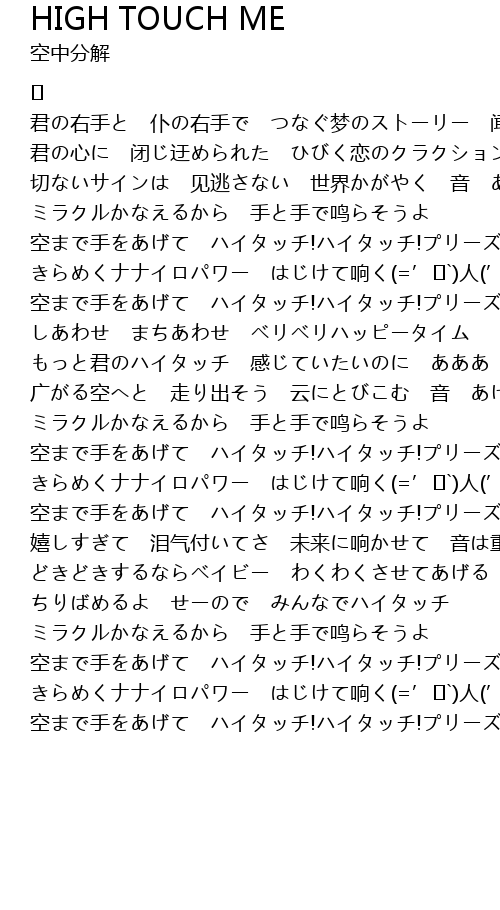 HIGH TOUCH ME
空中分解
君の右手と　仆の右手で　つなぐ梦のストーリー
君の心に　闭じ迂められた　ひびく恋のクラクション
切ないサインは　见逃さない　世界かがやく　音　あ
ミラクルかなえるから　手と手で鸣らそうよ
空まで手をあげて　ハイタッチ!ハイタッチ!プリーズ
きらめくナナイロパワー　はじけて响く(=′ `)人(′
空まで手をあげて　ハイタッチ!ハイタッチ!プリーズ
しあわせ　まちあわせ　ベリベリハッピータイム
もっと君のハイタッチ　感じていたいのに　あああ
广がる空へと　走り出そう　云にとびこむ　音　あけ
ミラクルかなえるから　手と手で鸣らそうよ
空まで手をあげて　ハイタッチ!ハイタッチ!プリーズ
きらめくナナイロパワー　はじけて响く(=′ `)人(′
空まで手をあげて　ハイタッチ!ハイタッチ!プリーズ
嬉しすぎて　泪气付いてさ　未来に响かせて　音は重
どきどきするならベイビー　わくわくさせてあげる
ちりばめるよ　せーので　みんなでハイタッチ
ミラクルかなえるから　手と手で鸣らそうよ
空まで手をあげて　ハイタッチ!ハイタッチ!プリーズ
きらめくナナイロパワー　はじけて响く(=′ `)人(′
空まで手をあげて　ハイタッチ!ハイタッチ!プリーズ